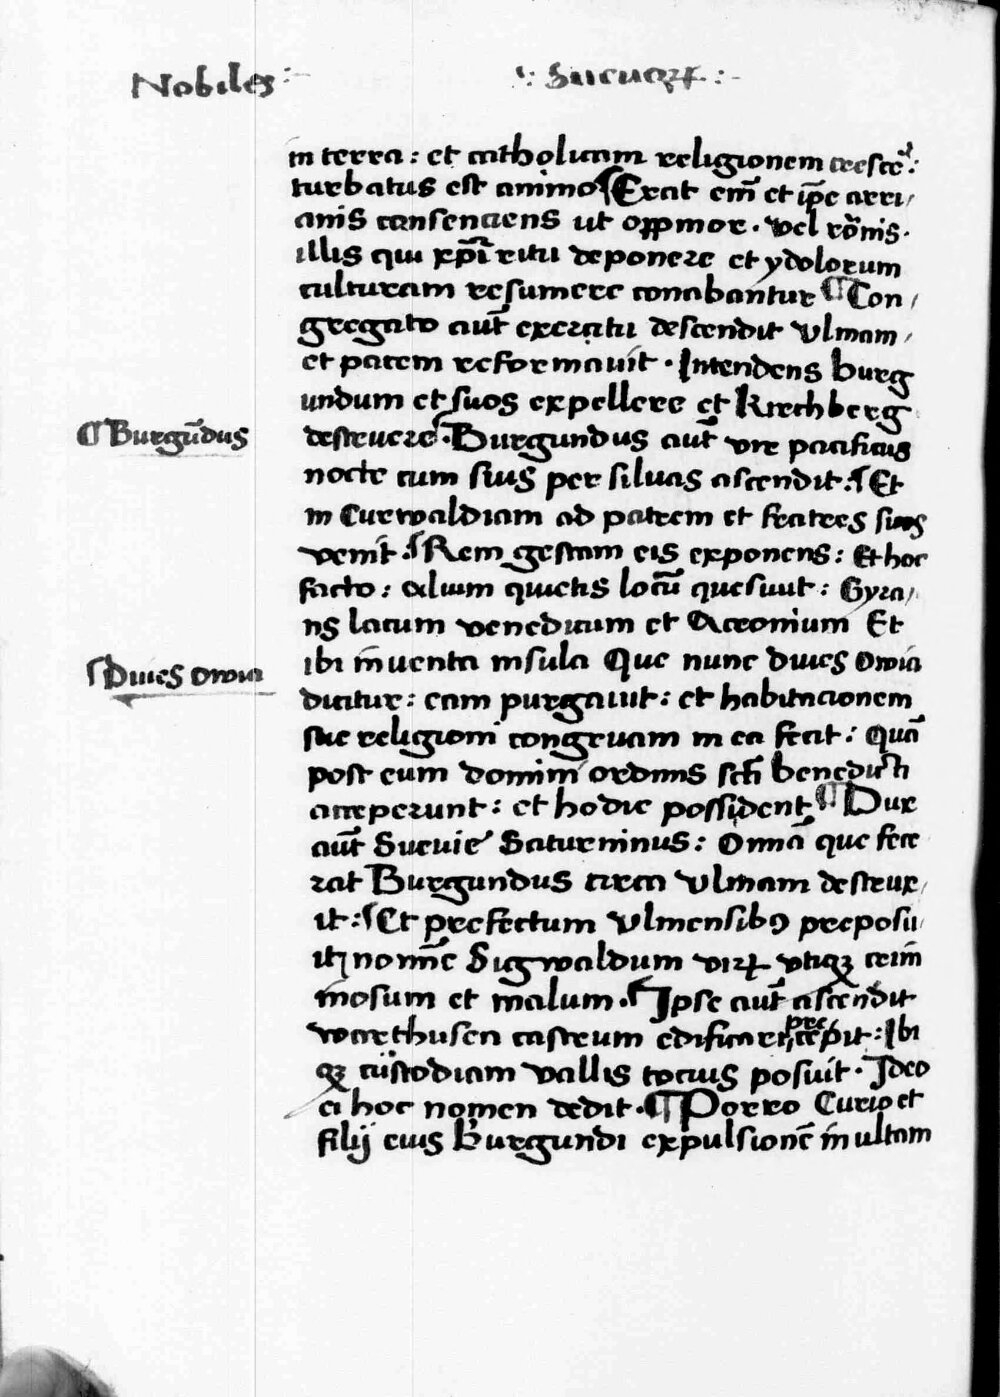 Nobiles
Sueuorꝝ
in terra : et catholicam religionem cresce᷑ :
turbatus est animo ¶ Erat em̄ et ip̄e arri/
anis consenciens ut oppmor . vel ro᷑nis .
illis qui xp̄i ritu deponere et ydolorum
culturam resumere conabantur ¶ Con/
gregato aut̄ exercitu descendit Vlmam/
et pacem reformauit . Intendens burg
undum et suos expellere et Kirchberg
¶ Burgūdus
destruere . Burgundus aut̄ vir pacificus
nocte cum suis per siluas ascendit . ¶ Et
in Curwaldiam ad patrem et fratres suos
venit . ¶ Rem gestam eis exponens : Et hoc
facto : alium quietis locū quesiuit : Gyra/
ns lacum venedicum et Acronium Et
ibi inuenta insula Que nunc diues Owia
¶ Diues owia
dicitur : eam purgauit : et habitacionem
sue religioni congruam in ea fecit : Quā
post eum domini ordinis sct̄i benedicti
acceperunt : et hodie possident ¶ Dux
aut̄ Sueuie Saturninus : Omnia que fece
rat Burgundus circa Vlmam destrux/
it : ¶ Et prefectum Vlmensibꝰ preposu
it nomīe Sigwaldum virꝝ vtiqꝫ crim
inosum et malum . ¶ Ipse aut̄ ascendit
warthusen castrum edificare precepit : Ibi
qꝫ custodiam vallis tocius posuit . Ideo
ei hoc nomen dedit . ¶ Porro Curio et
filij eius Burgundi expulsionē inultam